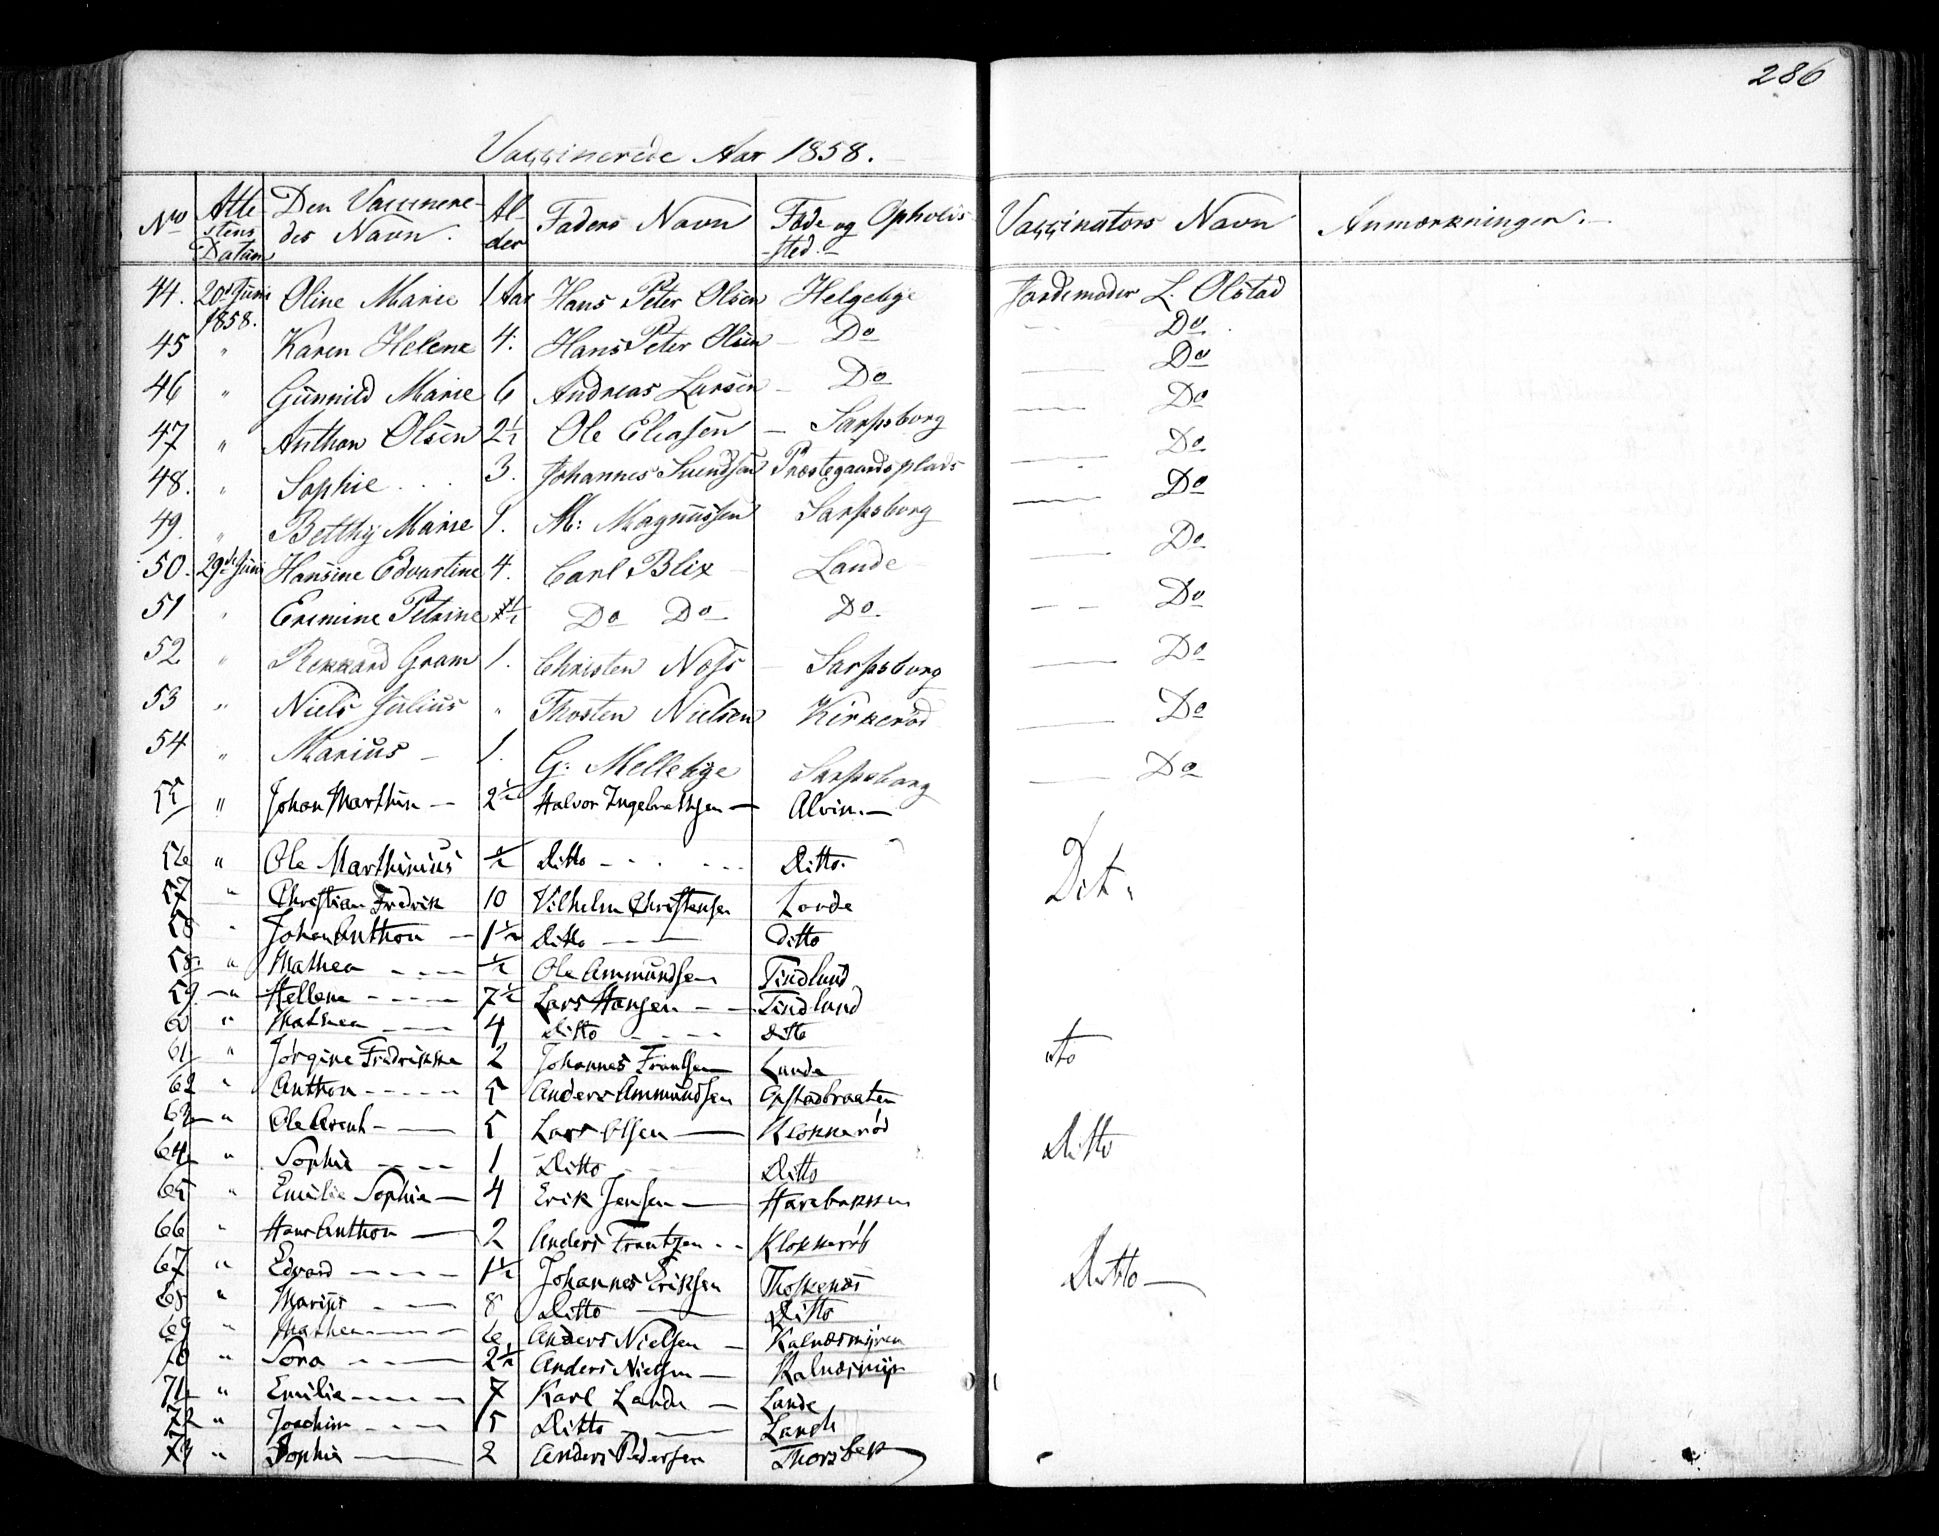 286
Vaccinerede Aar 1858.
No Attestens Datum Den Vaccineredes Navn. Alder Faders Navn Føde og Opholdssted. Vaccinators Navn Anmærkninger.
44. 20de Juni 1858. Oline Marie 1 Aar Hans Peter Olsen Helgebye Jordemoder L. Olstad
45 " Karen Helene 4. Hans Peter Olsen Do Do
46 " Gunnild Marie 6 Andreas Larsen Do Do
47 " Anthon Olsen 2½ Ole Eliasen Sarpsborg Do
48. " Sophie 3. Johannes Svendsen Præstegaardsplads Do
49. " Betthy Marie 1. M: Magnussen Sarpsborg Do
50. 29de Juni Hansine Edvartine 4. Carl Blix Lande Do
51 " Ermine Petrine ½ Do Do Do Do
52 " Rikkard Gram 1. Christen Noss Sarpsborg Do
53 " Niels Julius " Thosten Nielsen Kirkerød Do
54 " Marius 1. G: Mellebye Sarpsborg Do
55 " Johan Marthin 2½ Halvor Ingebrethsen Alvin Do
56 " Ole Marthinius ½ Ditto Ditto
57 " Christian Fredrik 10 Vilhelm Christensen Lande Dit
58 " Johan Anthon 1½ Ditto Ditto
58 " Mathea ½ Ole Ammundsen Tindlund
59 " Hellene 7½ Lars Hansen Tindlund
60 " Mathea 4 Ditto Ditto
61 " Jørgine Fredrikke 2 Johannes Frantsen Lande to
62 " Anthon 5 Anders Ammundsen Opstadbraaten
63 " Ole Arent 5 Lars Olsen Klokkerød
64 " Sophie 1 Ditto Ditto Ditto
65 " Emilie Sophie 4 Erik Jensen Harebakken
66 " Hans Anthon 2 Anders Frantzen Klokkerød
67 " Edvard 1½ Johannes Eriksen
68 " Marius 8 Ditto Ditto Ditto
69 " Mathea 6 Anders Nielsen Kalnæsmyren
70 " Tora 2½ Anders Nielsen Kalnæsmyr
71 " Emilie 7 Karl Lande Lande
72 " Joachim 5 Ditto Lande
73 " Sophie 2 Anders Pedersen Thorsbek